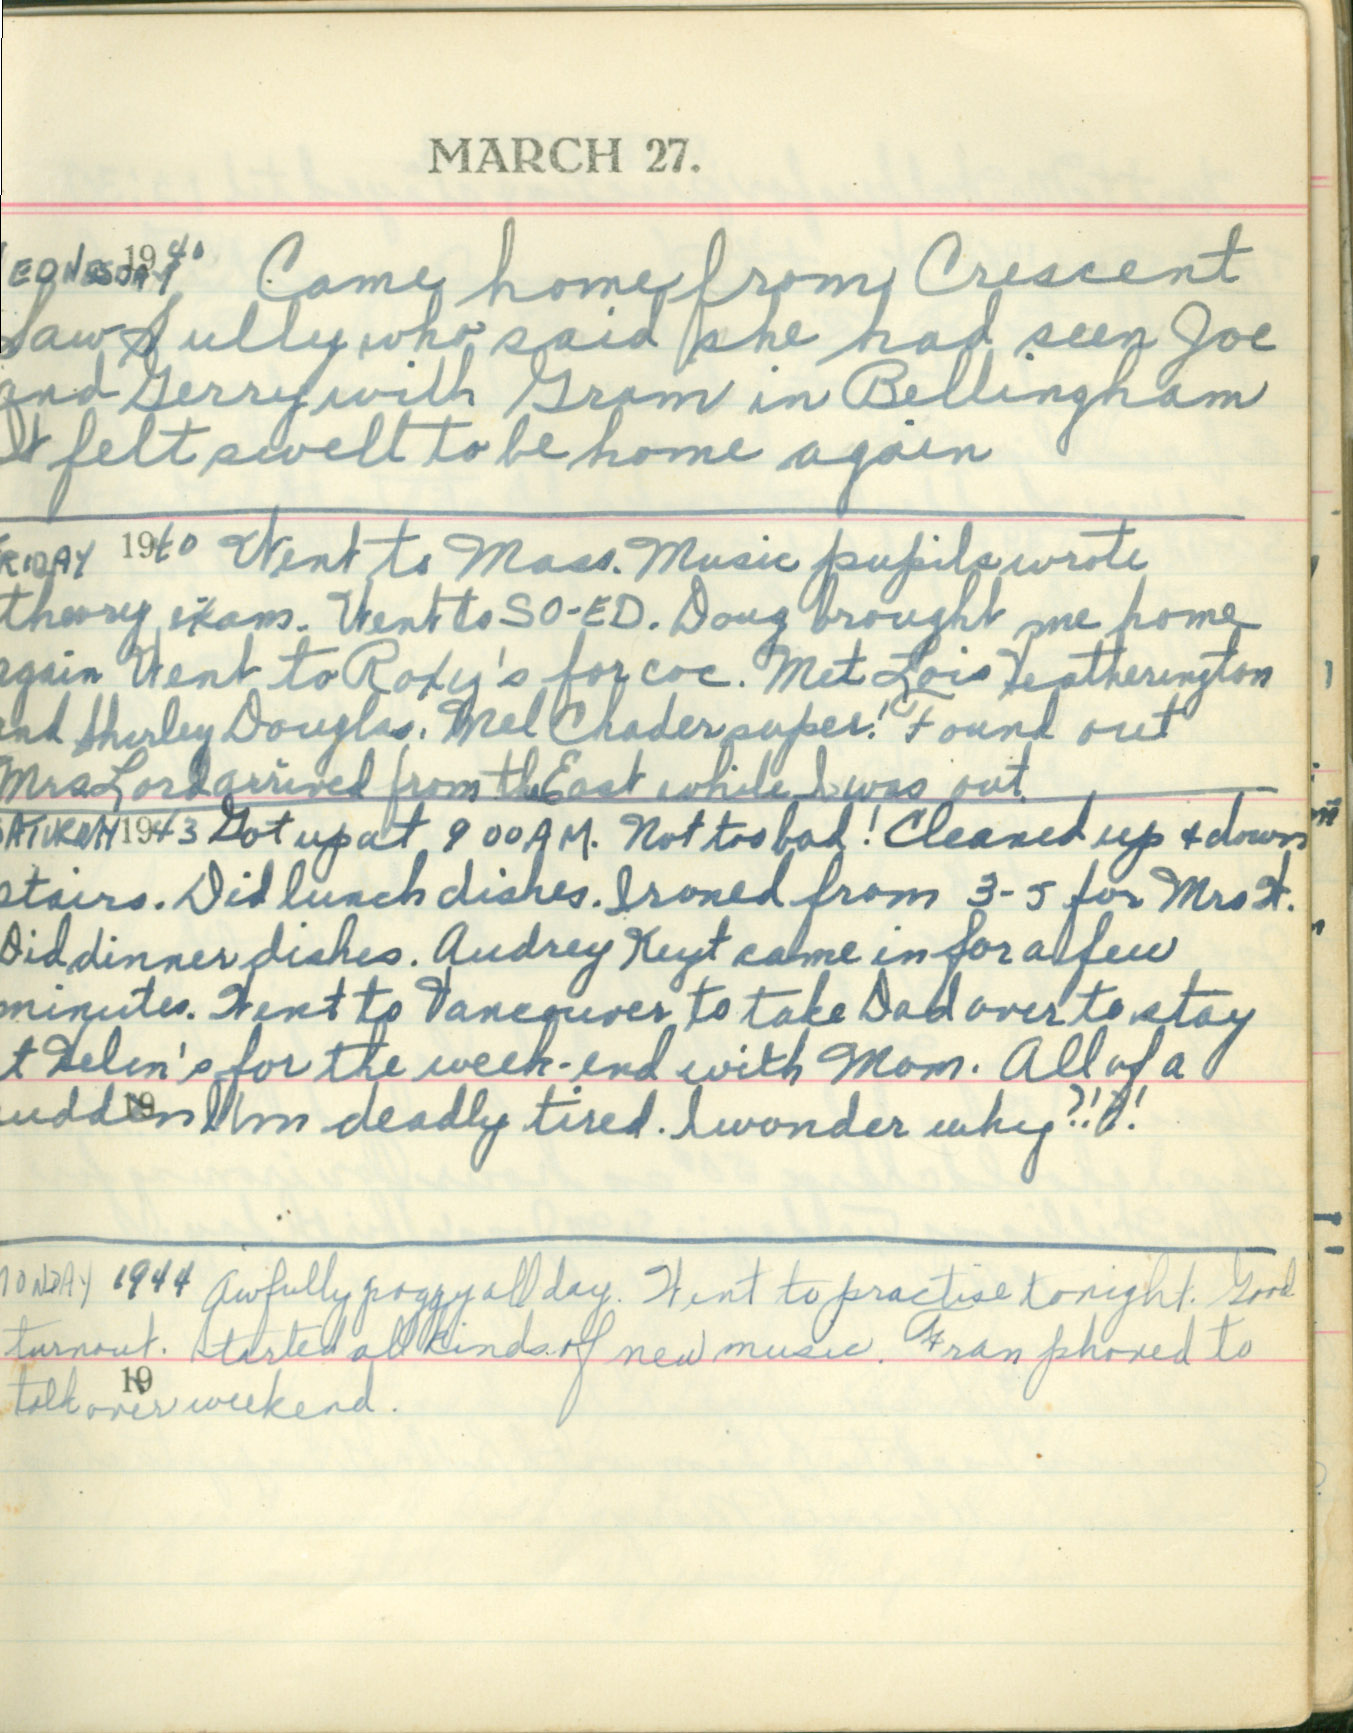 MARCH 27.
WEDNESDAY 1940 Came home from Crescent
Saw Sully who said she had seen Joe
and Gerry with Gram in Bellingham
It felt swell to be home again
FRIDAY 1940 Went to Mass. Music pupils wrote
theory exams. Went to SO-ED. Doug brought me home
again Went to Roxy's for coc. Met Lois Featherington
and Shirley Douglas. Mel Chader super! Found out
Mrs Lord arrived from the East while I was out
SATURDAY 1943 Got up at 9 00 A M. Not too bad! Cleaned up & down
stairs. Did lunch dishes. Ironed from 3-5 for Mrs H.
Did dinner dishes. Audrey Keyt came in for a few
minutes. Went to Vancouver to take Dad over to stay
at Helen's for the week-end with Mom. All of a
19
sudden I'm deadly tired. I wonder why?!!?!
MONDAY 1944 Awfully foggy all day. Went to practise tonight. Good
turnout. Started all kinds of new music. Fran phoned to
19
talk over weekend.